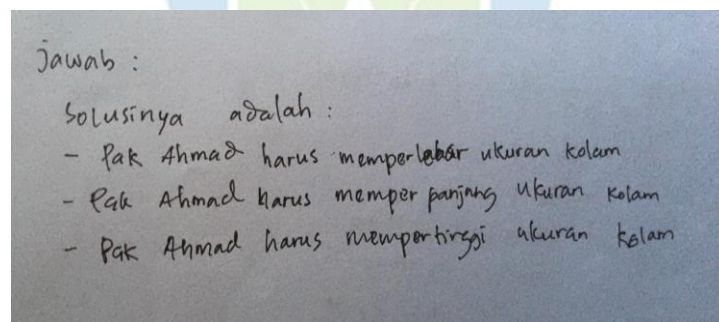 Jawab :
Solusinya adalah :
- Pak Ahmad harus memperlebar ukuran kolam
- Pak Ahmad harus memper panjang ukuran kolam
- Pak Ahmad harus mempertinggi ukuran kolam